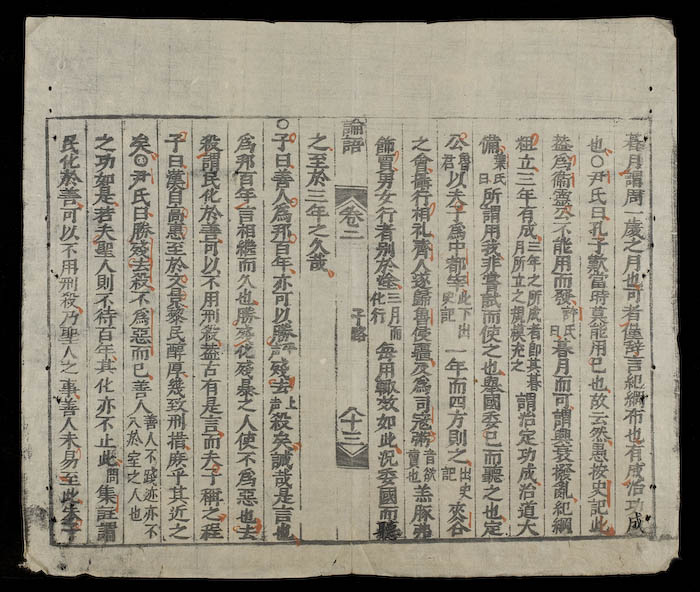 朞月謂周一歲之月也可者僅辭言紀綱布也有成治功成
也○尹氏曰孔子歎當時莫能用己也故云然愚按史記此
蓋爲衛靈公不能用而發許氏曰朞月而可謂興衰撥亂紀綱
粗立三年有成三年之所成者卽其朞月所立之規模充之謂治定功成治道大
備葉氏曰所謂用我非嘗試而使之也擧國委己而聽之也定
公魯君以夫子爲中都宰此下出史記一年而四方則之出史記夾谷
之會攝行相礼齊人遂歸魯侵疆及爲司寇粥音欲賣也羔豚弗
飾賈男女行者別於途三月而化行每用輒效如此況委國而聽
之至於三年之久哉
論語 卷二 子路 八十三
○子曰善人爲邦百年亦可以勝平聲殘去上聲殺矣誠哉是言也
爲邦百年言相繼而久也勝殘化殘暴之人使不爲惡也去
殺謂民化於善可以不用刑殺蓋古有是言而夫子稱之程
子曰漢自高惠至於文景黎民醇厚幾致刑措庶乎其近之
矣○尹氏曰勝殘去殺不爲惡而已善人善人不踐迹亦不入於室之人也
之功如是若夫聖人則不待百年其化亦不止此問集註謂
民化於善可以不用刑殺乃聖人之事善人未易至此朱子